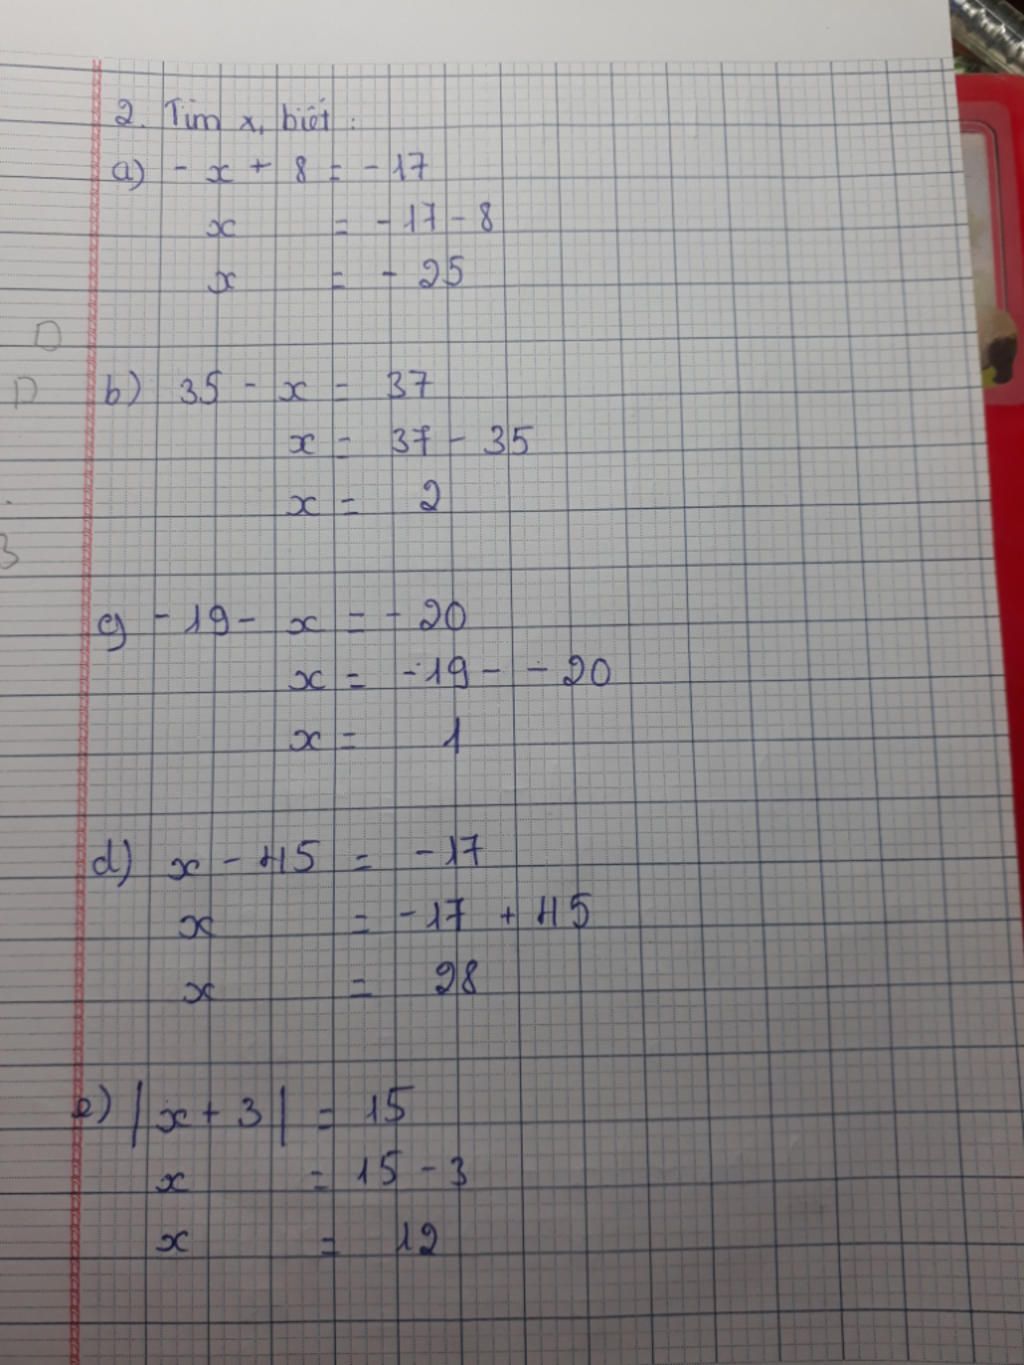 2. Tìm x, biết:
a) - x + 8 = - 17
x = - 17 - 8
x = - 25
b) 35 - x = 37
x = 37 - 35
x = 2
c) - 19 - x = - 20
x = - 19 - - 20
x = 1
d) x - 45 = - 17
x = - 17 + 45
x = 28
e) |x + 3| = 15
x = 15 - 3
x = 12